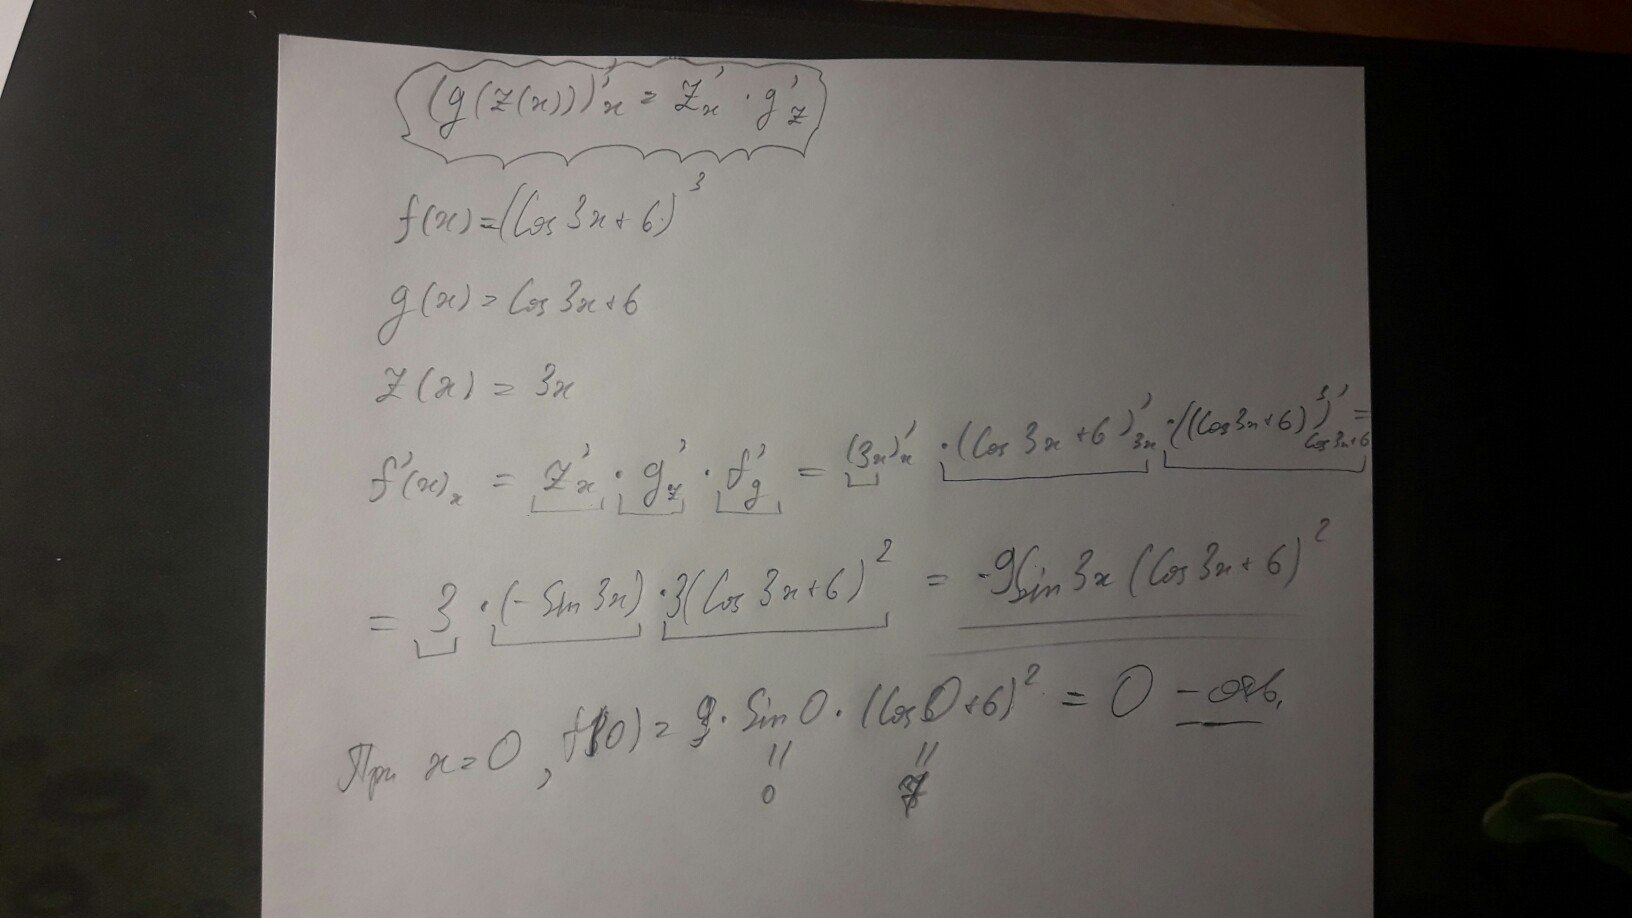 (g(z(x)))'x = z'x · g'z
f(x) = (Cos 3x + 6)³
g(x) = Cos 3x + 6
z(x) = 3x
f'(x)x = z'x · g'z · f'g = (3x)'x · (Cos 3x + 6)'3x · ((Cos 3x + 6)³)'Cos 3x + 6 =
= 3 · (- Sin 3x) · 3(Cos 3x + 6)² = -9 Sin 3x (Cos 3x + 6)²
При x = 0, f'(0) = · Sin 0 · (Cos 0 + 6)² = 0 -
0